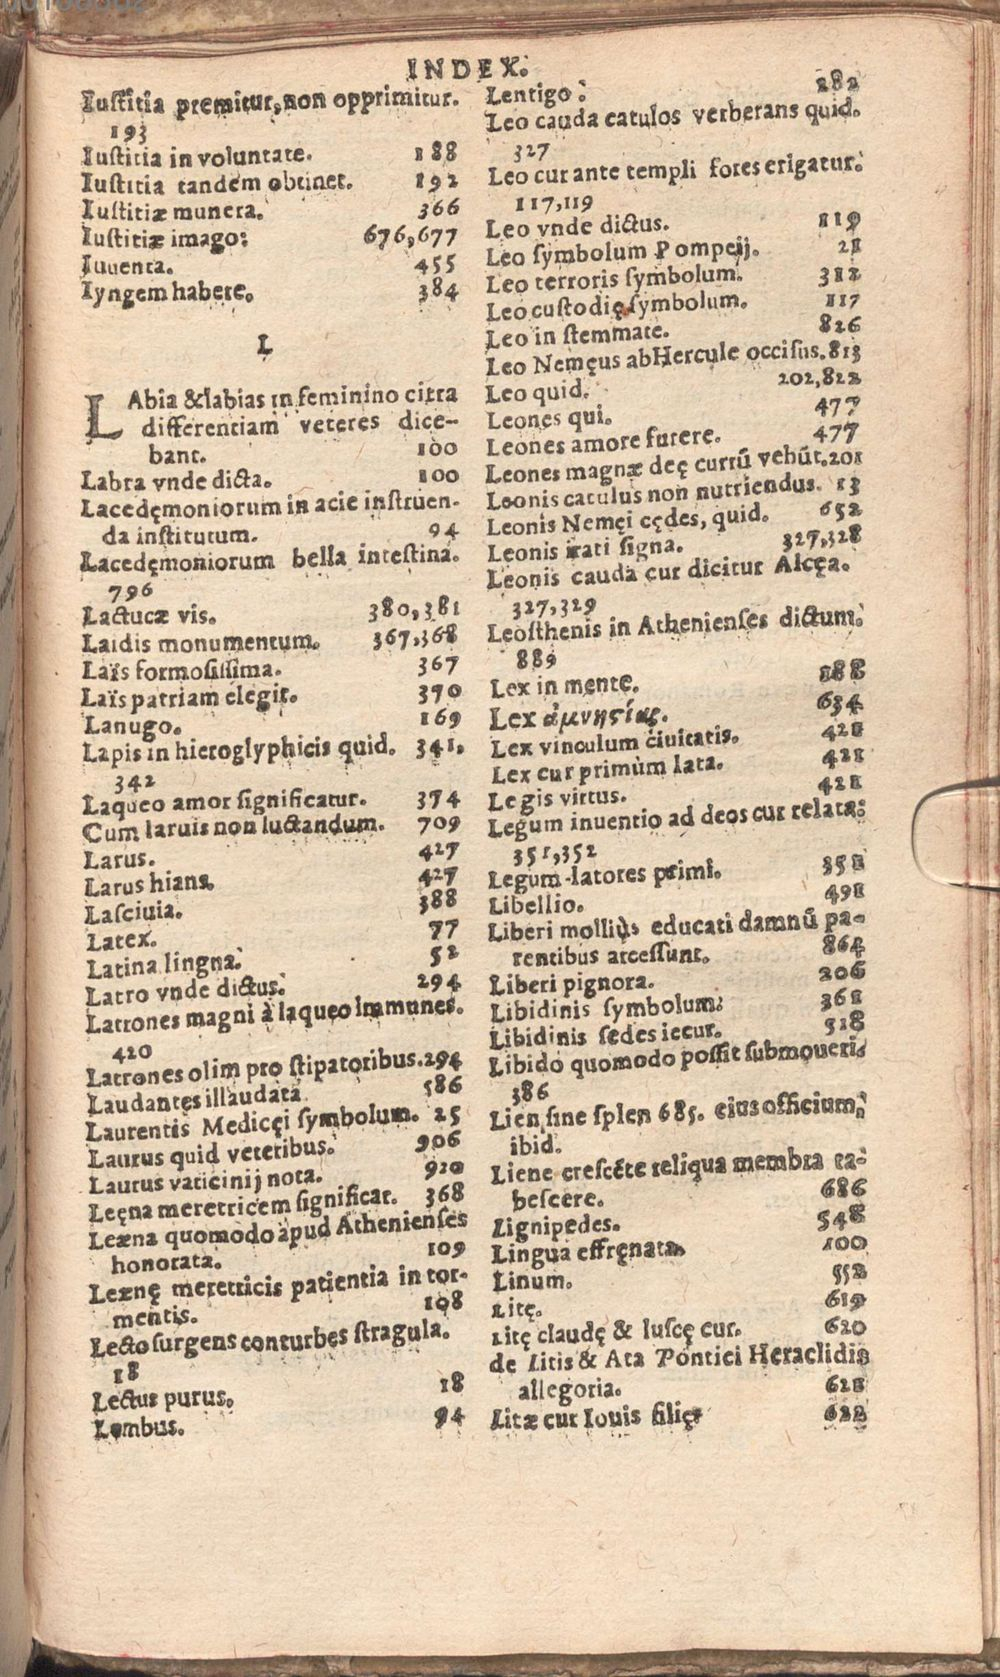 INDEX.
Iustitia premitur, non opprimitur.
193
Iustitia in voluntate. 188
Iustitia tandem obtinet. 192
Iustitiæ munera. 366
Iustitiæ imago: 676,677
Iuuenta. 455
Iyngem habere. 384
L
LAbia & labias in feminino citra
differentiam veteres dice-
bant. 100
Labra vnde dicta. 100
Lacedęmoniorum in acie instruen-
da institutum. 94
Lacedęmoniorum bella intestina.
796
Lactucæ vis. 380,381
Laidis monumentum. 367,368
Laïs formosissima. 367
Laïs patriam elegit. 370
Lanugo. 169
Lapis in hieroglyphicis quid. 341,
342
Laqueo amor significatur. 374
Cum laruis non luctandum. 709
Larus. 427
Larus hians. 427
Lasciuia. 388
Latex. 77
Latina lingna. 52
Latro vnde dictus. 294
Latrones magni à laqueo immunes.
420
Latrones olim pro stipatoribus. 294
Laudantes illaudata 586
Laurentis Medicęi symbolum. 25
Laurus quid veteribus. 906
Laurus vaticinij nota. 920
Leęna meretricem significat. 368
Leæna quomodo apud Athenienses
honorata. 109
Leænę meretricis patientia in tor-
mentis. 108
Lecto surgens conturbes stragula.
18
Lectus purus. 18
Lembus. 94
Lentigo. 282
Leo cauda catulos verberans quid.
327
Leo cur ante templi fores erigatur.
117,119
Leo vnde dictus. 119
Leo symbolum Pompeij. 21
Leo terroris symbolum. 312
Leo custodię symbolum. 117
Leo in stemmate. 826
Leo Nemęus ab Hercule occisus. 813
Leo quid. 202,822
Leones qui. 477
Leones amore furere. 477
Leones magnæ deę currū vehūt. 201
Leonis catulus non nutriendus. 13
Leonis Nemęi cędes, quid. 652
Leonis irati signa. 327,328
Leonis cauda cur dicitur Alcęa.
327,329
Leosthenis in Athenienses dictum.
889
Lex in mente. 188
Lex ἀμνησίας. 634
Lex vinculum ciuitatis. 421
Lex cur primùm lata. 421
Legis virtus. 421
Legum inuentio ad deos cur relata:
351,352
Legum-latores primi. 351
Libellio. 491
Liberi molliùs educati damnū pa-
rentibus arcessunt. 864
Liberi pignora. 206
Libidinis symbolum: 361
Libidinis sedes iecur. 518
Libido quomodo possit submoueri.
386
Lien sine splen 685. eius officium,
ibid.
Liene crescēte reliqua membra ta-
bescere. 686
Lignipedes. 548
Lingua effręnata. 100
Linum. 552
Litę. 619
Litę claudę & luscę cur. 620
de Litis & Ata Pontici Heraclidis
allegoria. 621
Litæ cur Iouis filię 622